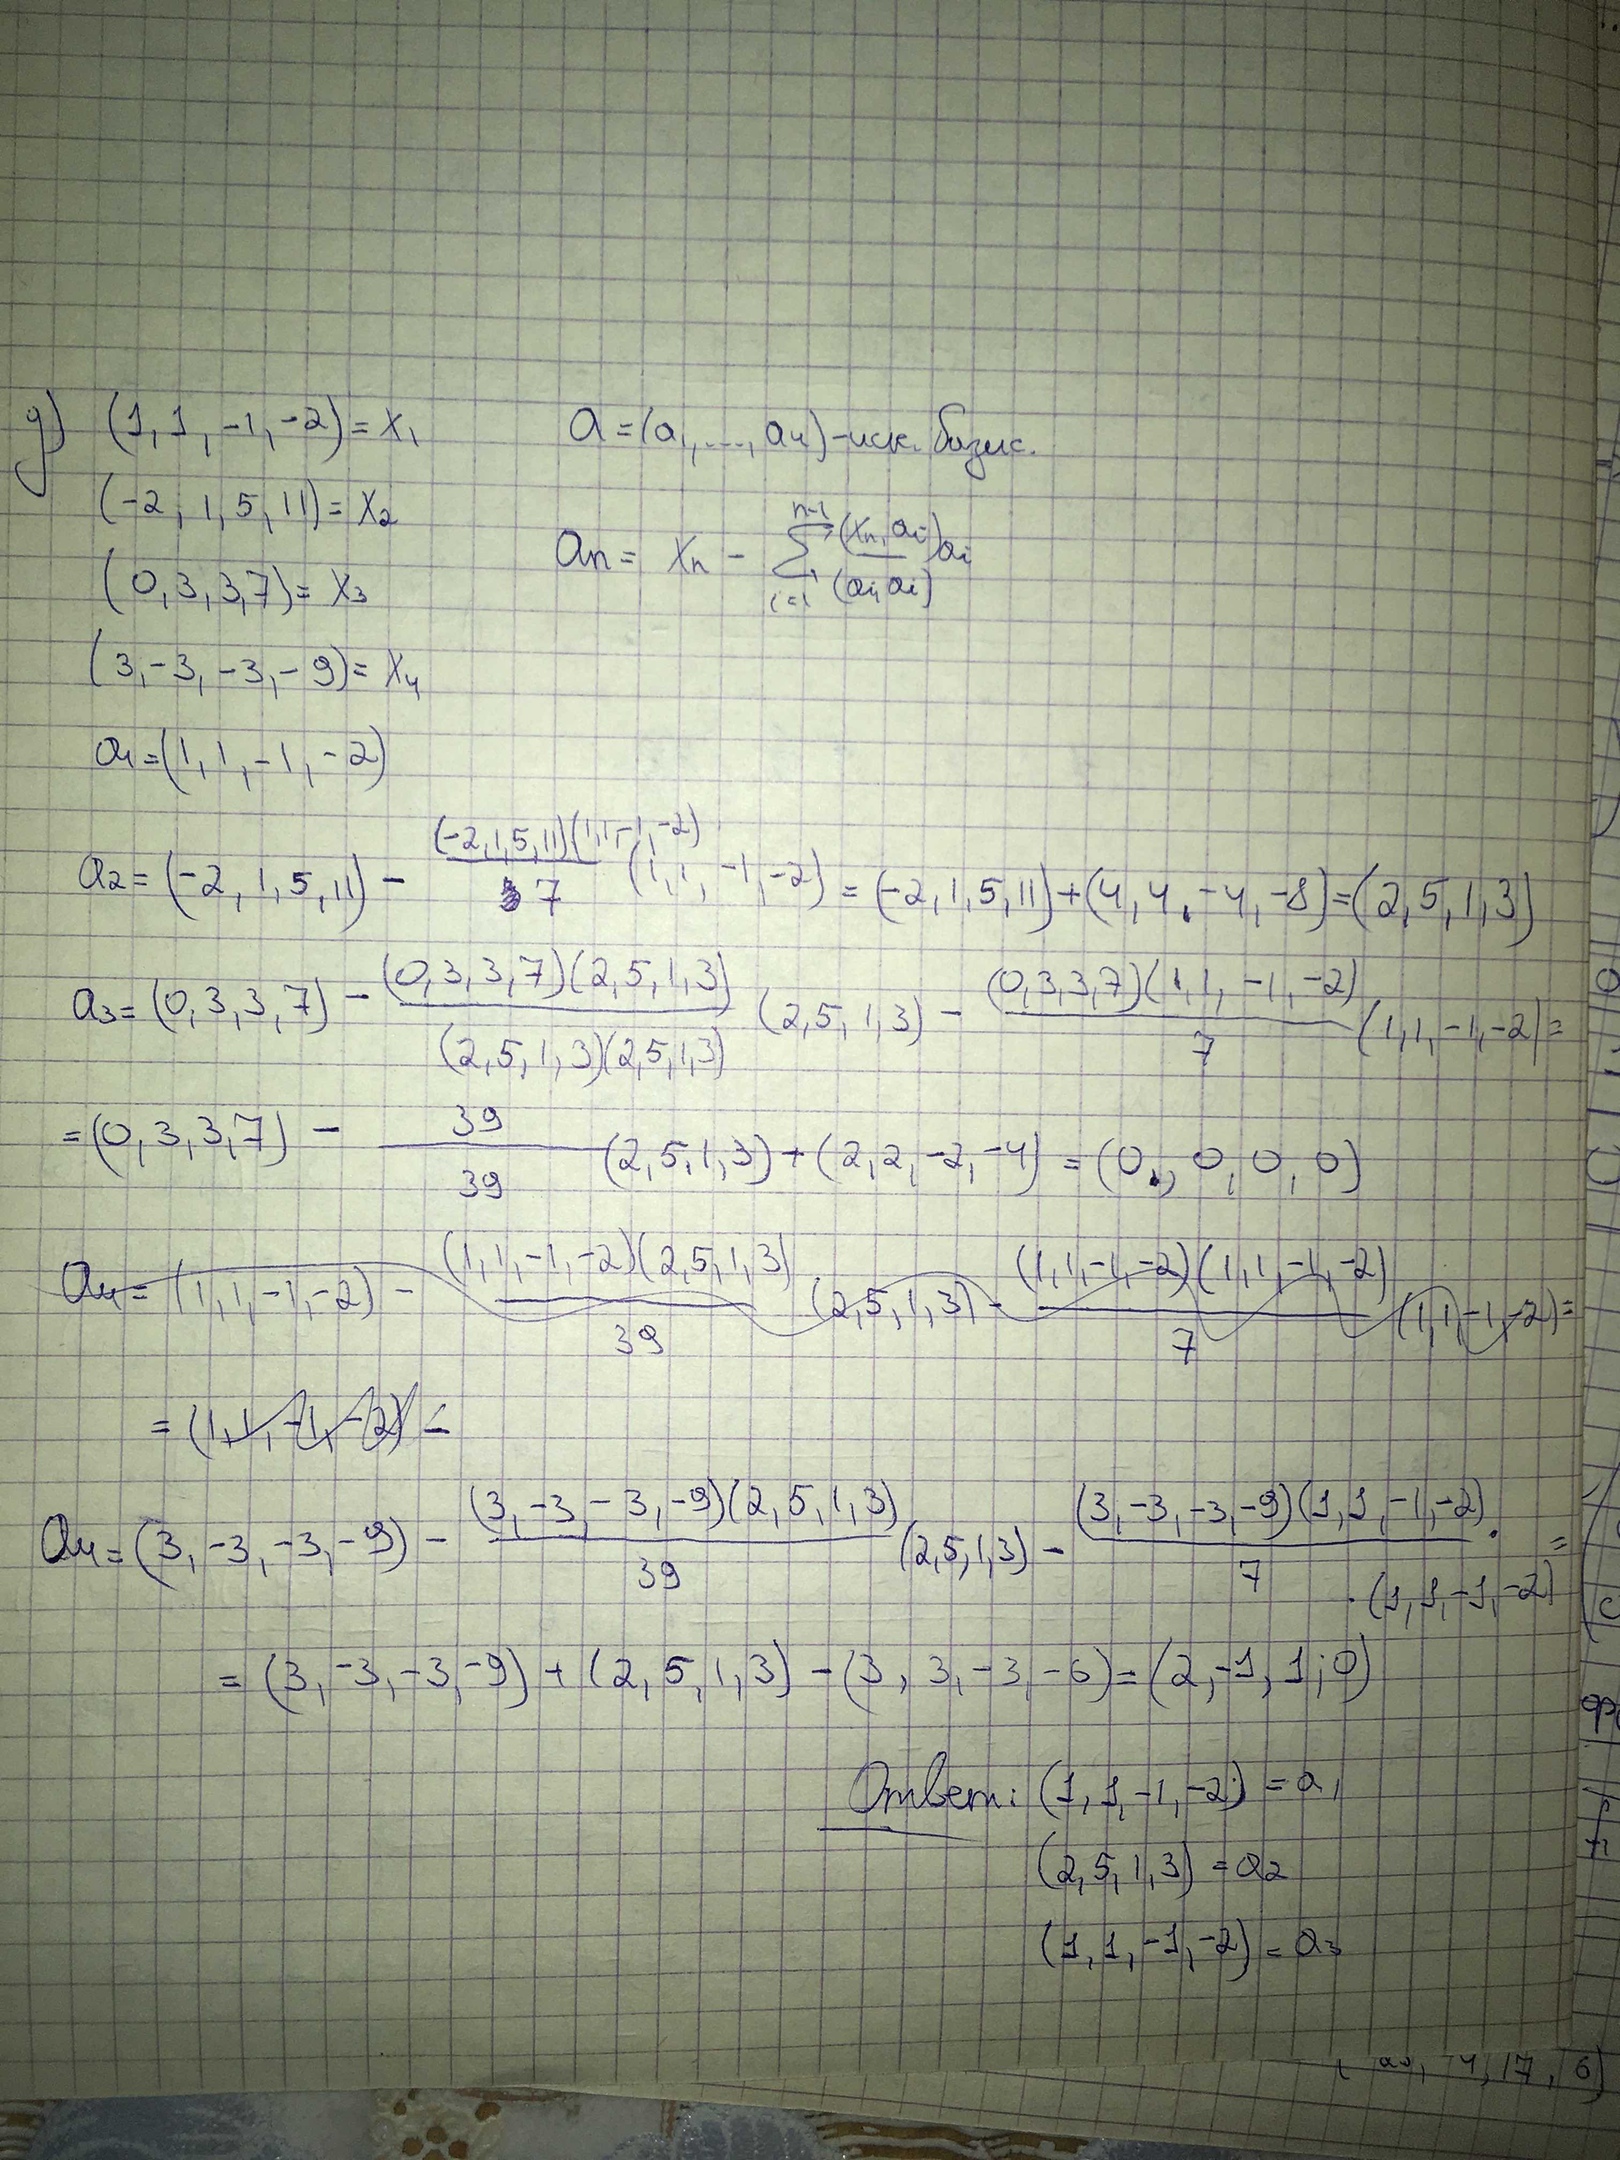 д) (1, 1, -1, -2) = x₁ a = (a₁, ..., a₄) - иск. базис.
(-2, 1, 5, 11) = x₂
(0, 3, 3, 7) = x₃ aₙ = xₙ - ∑ᵢ₌₁ⁿ⁻¹ (xₙ, aᵢ)/(aᵢ, aᵢ) aᵢ
(3, -3, -3, -9) = x₄
a₁ = (1, 1, -1, -2)
a₂ = (-2, 1, 5, 11) - (-2, 1, 5, 11)(1, 1, -1, -2)/7 (1, 1, -1, -2) = (-2, 1, 5, 11) + (4, 4, -4, -8) = (2, 5, 1, 3)
a₃ = (0, 3, 3, 7) - (0, 3, 3, 7)(2, 5, 1, 3)/(2, 5, 1, 3)(2, 5, 1, 3) (2, 5, 1, 3) - (0, 3, 3, 7)(1, 1, -1, -2)/7 (1, 1, -1, -2) =
= (0, 3, 3, 7) - 39/39 (2, 5, 1, 3) + (2, 2, -2, -4) = (0, 0, 0, 0)
a₄ = (1, 1, -1, -2) - (1, 1, -1, -2)(2, 5, 1, 3)/39 (2, 5, 1, 3) - (1, 1, -1, -2)(1, 1, -1, -2)/7 (1, 1, -1, -2) =
= (1, 1, -1, -2) -
a₄ = (3, -3, -3, -9) - (3, -3, -3, -9)(2, 5, 1, 3)/39 (2, 5, 1, 3) - (3, -3, -3, -9)(1, 1, -1, -2)/7 · · (1, 1, -1, -2) =
= (3, -3, -3, -9) + (2, 5, 1, 3) - (3, 3, -3, -6) = (2, -1, 1, 0)
Ответ: (1, 1, -1, -2) = a₁
(2, 5, 1, 3) = a₂
(1, 1, -1, -2) = a₃